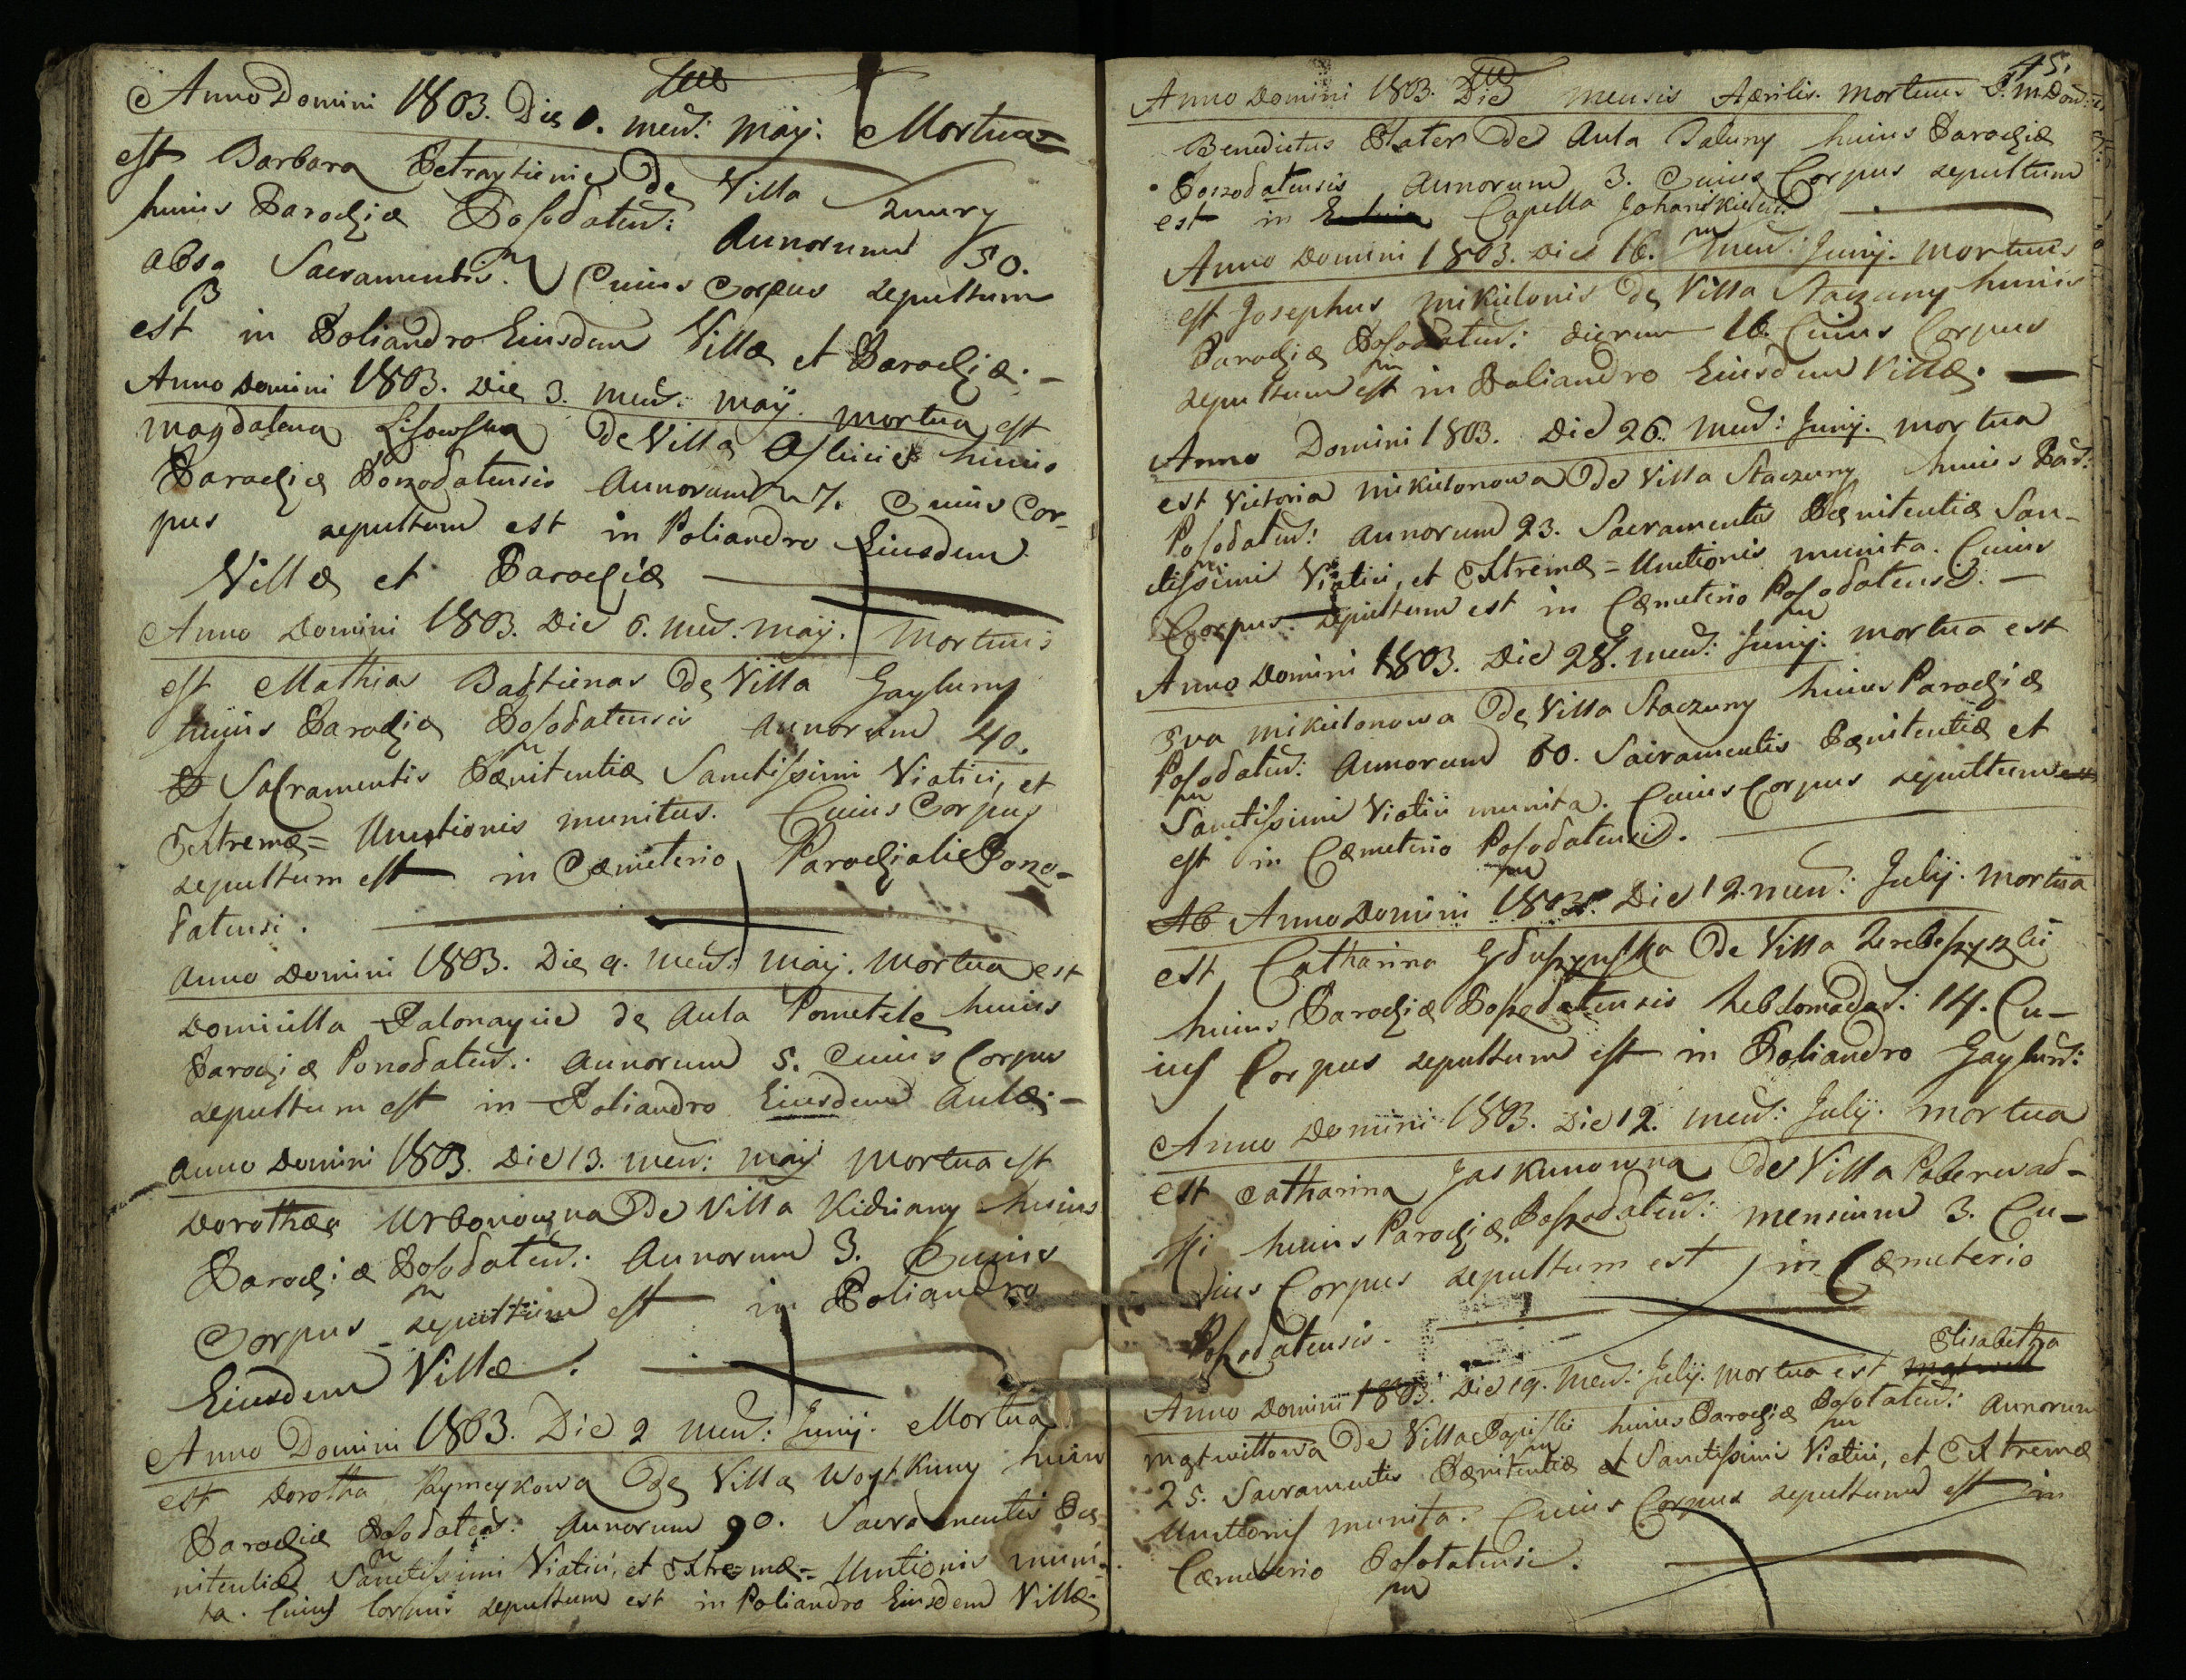 Anno Domini 1803. Die 1. men: maij. Mortua
est Barbara Petraytienie de Villa Znury
huius Parochiæ Posodaten: Annorum 50.
absq Sacramentis. Cuius Corpus sepultum
est in Poliandro Eiusdem Villæ et Parochiæ. –
Anno Domini 1803. Die 3. men: maij. mortua est
Magdalena Lisowska de Villa huius
Parochiæ Ponodatensis Annorum 7. Cuius Cor-
pus sepultum est in Poliandro Eiusdem
Villæ et Parochiæ
Anno Domini 1803. Die 6. men. maij. Mortuus
est Mathias Bastienas de Villa Gayluny
huius Parochiæ Posodatensis Annorum 40.
Sacramentis Pænitentiæ Sanctissimi Viatici, et
Extremæ = Unctionis munitus. Cuius Corpus
sepultum est in Cæmeterio Parochiali Pono-
datensi.
Anno Domini 1803. Die 9. men: maij. Mortua est
Domicilla Palonayue de Aula Pometele huius
Parochiæ Ponodaten: Annorum 5. Cuius Corpus
sepultum est in Poliandro Eiusdem Aulæ. –
Anno Domini 1803. Die 13. men: maij mortua est
Dorothæa Urbonowna De Villa Kidziany huius
Parochiæ Posodaten: Annorum 3. Cuius
Corpus sepultum est in Poliandro
Eiusdem Villæ.
Anno Domini 1803. Die 2 men: Junij. Mortua
est Dorotha Rymeykowa De Villa Woytkuny huius
Parochiæ Posodaten: Annorum 90. Sacramentis Pæ
nitentiæ Sanctissimi Viatici, et Extremæ = Unctionis muni-
ta. Cuius Corpus sepultum est in Poliandro Eiusdem Villæ.
45.
Anno Domini 1803. Die mensis Aprilis. Mortuus
Benedictus Plater De Aula Paluny huius Parochiæ
Ponodatensis Annorum 3. Cuius Corpus sepultum
est in Capella Johaniskielen:
Anno Domini 1803. Die 16. men: Junij. Mortuus
est Josephus Mikulonis De Villa Staczuny huius
Parochiæ Posodaten: dierum 16. Cuius Corpus
sepultum est in Poliandro Eiusdem Villæ.
Anno Domini 1803. Die 26. men: Junij. mortua
est Victoria Mikulonowa De Villa Staczuny huius Par:
Posodaten: Annorum 23. Sacramentis Pænitentiæ San-
ctissimi Viatici, et Extremæ = Unctionis munita. Cuius
Corpus sepultum est in Cæmeterio Posodatensi. –
Anno Domini 1803. Die 28. men: Junij: mortua est
Eva Mikulonowa De Villa Staczuny huius Parochiæ
Posodaten: Annorum 60. Sacramentis Pænitentiæ et
Sanctissimi Viatici munita. Cuius Corpus sepultum
est in Cæmeterio Posodatensi.
Anno Domini 1803. Die 12. men: Julij. Mortua
est Catharina De Villa
huius Parochiæ Posodatensis hebdomadar: 14. Cu-
ius Corpus sepultum est in Poliandro Gaylun:
Anno Domini 1803. Die 12. men: Julij. mortua
est Catharina Jaskunowna De Villa Poberwad-
huius Parochiæ Posodaten: mensium 3. Cu-
ius Corpus sepultum est in Cæmeterio
Posodatensis.
Anno Domini 1803. Die 19. Men: Julij. Mortua est Elisabetha
Matwittowa De Villa huius Parochiæ Posotaten: Annorum
25. Sacramentis Pænitentiæ et Sanctissimi Viatici, et Extremæ
Unctionis munita. Cuius Corpus sepultum est in
Cæmeterio Posotatensi.